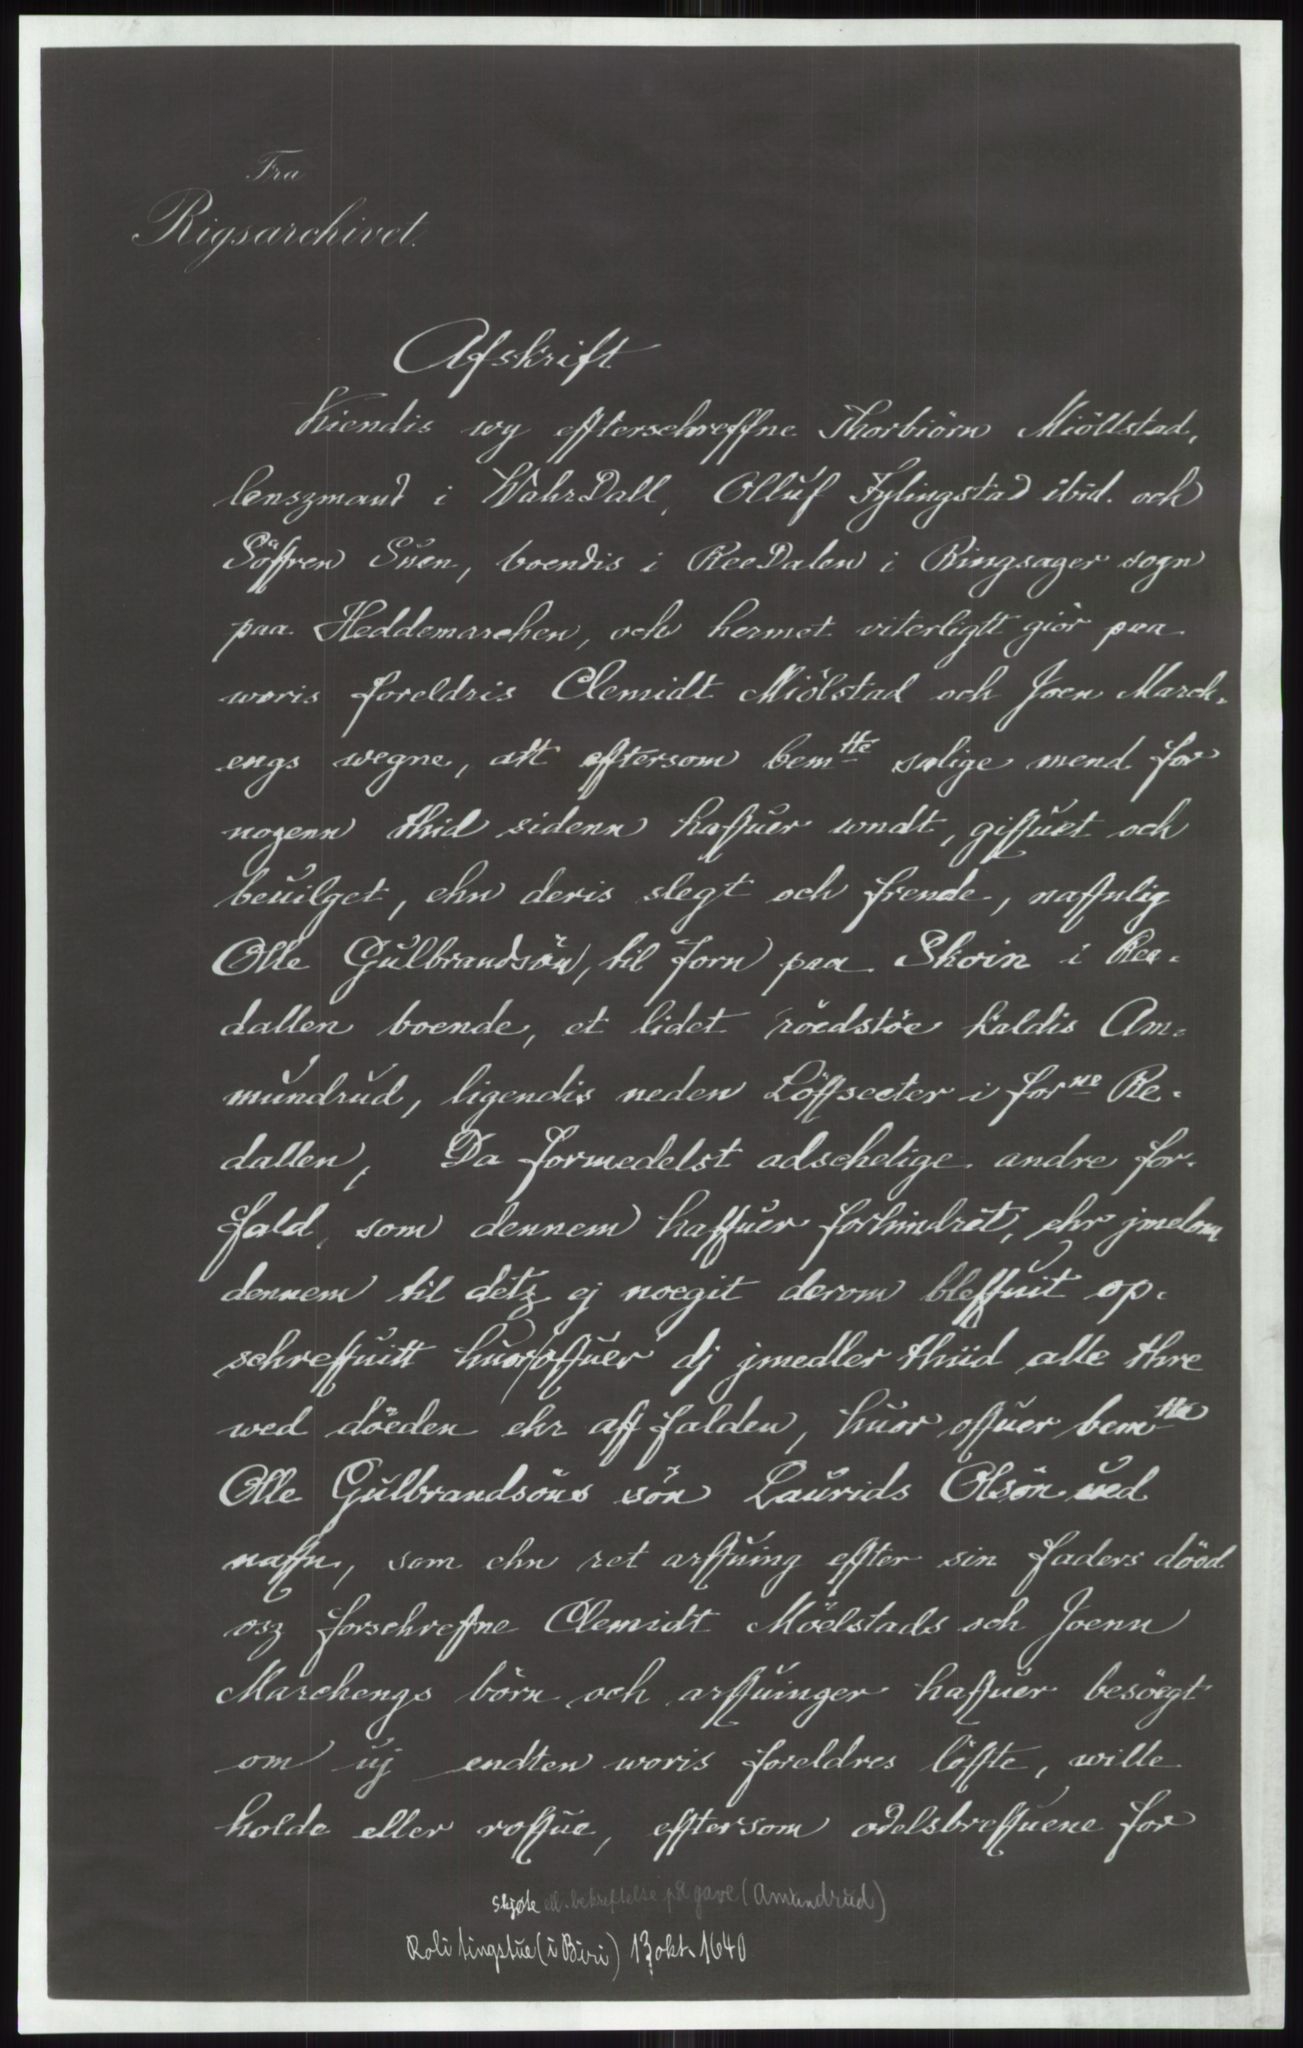 Fra
Rigsarchivet.
Afskrift
Kiendis wy effterschreffne Thorbiörn Miöllstad,
lenszmand i WahrDall, Olluf Fylingstad ibid. och
Söffren Suen, boendis i ReeDalen i Ringsager sogn
paa Heddemarchen, och hermet viterligtt giör paa
woris foreldris Clemidt Miölstad och Joen March-
engs wegne, att efftersom bemtte salige mend for
nogenn thid sidenn haffuer wndt, giffuet och
beuilget, ehn deris slegt och frende, naffnlig
Olle Gulbrandsön, til forn paa Skoin i Ree-
dallen boende, et lidet röedstöe kaldis Am-
mundrud, ligendis neden Löffseeter i forne Re-
dallen, Da formedelst adschelige andre for-
fald, som dennem haffuer forhindret, ehr jmelom
dennem til detz ej noegit derom bleffuit op-
schreffuitt huoroffuer dj jmedler thiid alle thre
wed döeden ehr aff falden, huor offuer bemtte
Olle Gulbrandsöns sön Laurids Olsön ued
naffn, som ehn ret arffuing effter sin faders dööd
osz forschreffne Clemidt Möelstads och Joenn
Marchengs börn och arffuinger haffuer besöegt
om uj endten woris foreldres löffte, wille
holde eller roffue, efftersom odelsbreffuene for
Skjøte ell. bekreftelse på gave (Amundrud)
Roli tingstue (i Biri) 13 okt. 1640